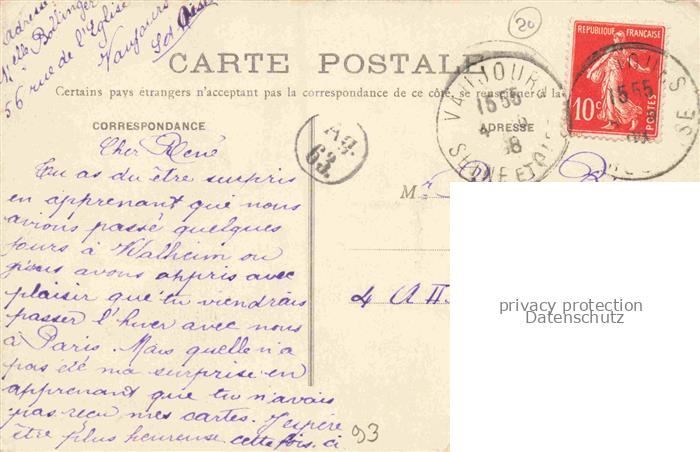 Adresse
Melle Bollinger
56 rue de l'Eglise
Vaujours
S et Oise
20
CARTE POSTALE
Certains pays étrangers n'acceptant pas la correspondance de ce côté, se renseigner à la
RÉPUBLIQUE FRANÇAISE
10c
POSTES
VAUJOURS
15 55
SEINE ET OISE
15 55
CORRESPONDANCE
ADRESSE
Ag.
63.
Cher René
Tu as du être surpris
en apprenant que nous
avions passé quelques
jours à Walheim ou
nous avons appris avec
plaisir que tu viendrais
passer l'hiver avec nous
à Paris. Mais quelle n'a
pas été ma surprise en
apprenant que tu n'avais
pas reçu mes cartes. J'espère
être plus heureuse cette fois-ci
Mr
4 A
93
privacy protection
Datenschutz